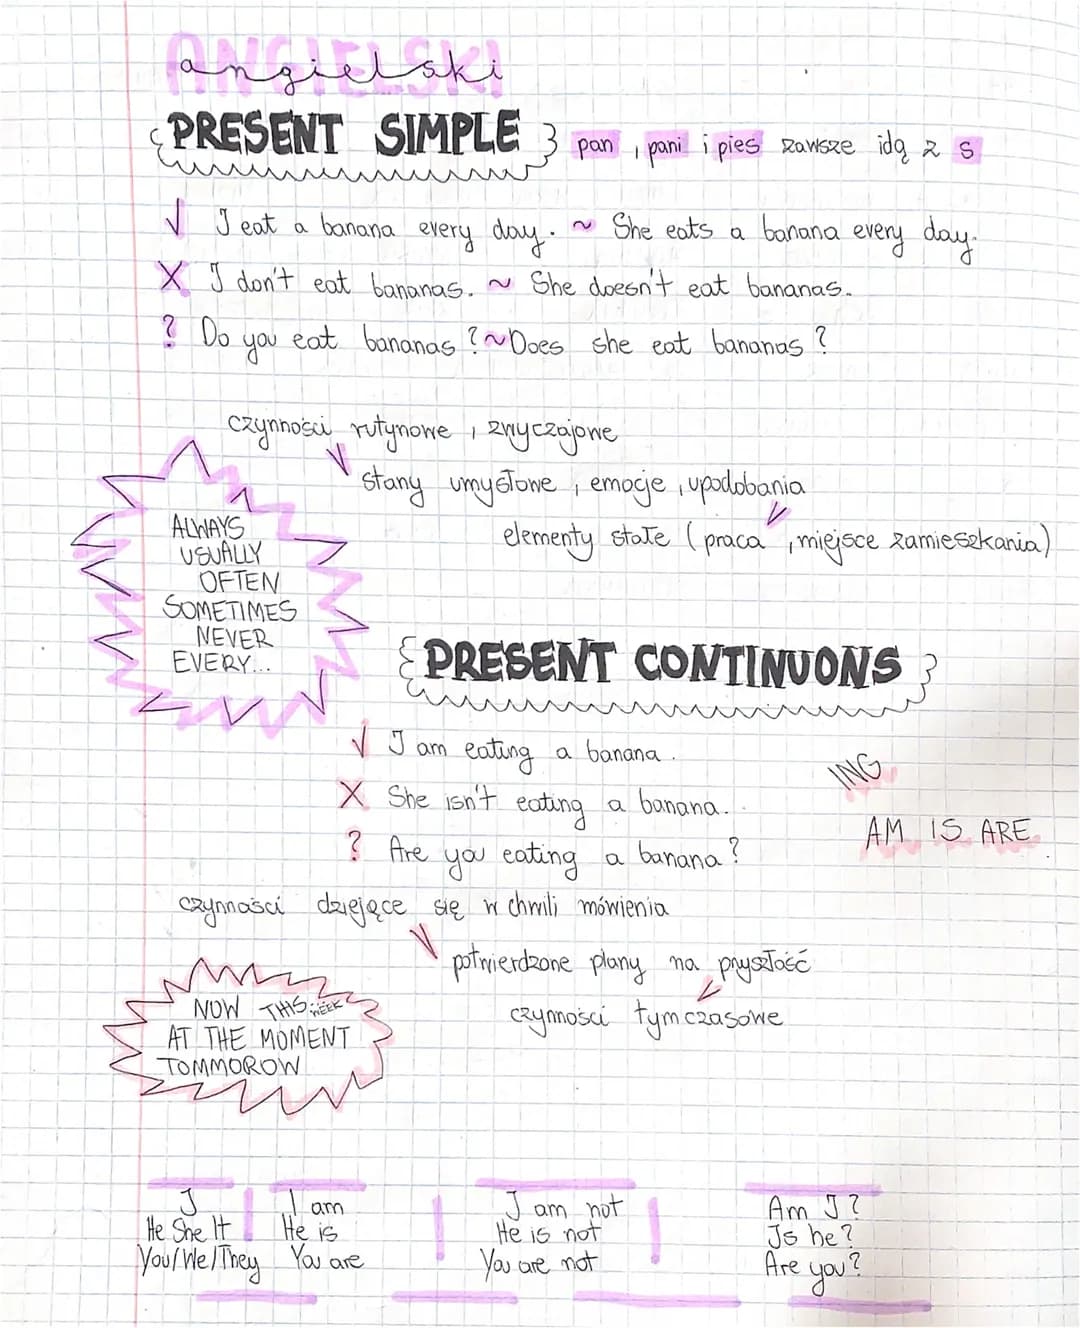 ANGIELSKI
angielski
PRESENT SIMPLE pan, pani i pies zawsze idą z s
√ I eat a banana every day. ~ She eats a banana every day.
X I don't eat bananas. ~ She doesn't eat bananas.
? Do you eat bananas? ~ Does she eat bananas?
czynności rutynowe, zwyczajowe
stany umysłowe, emocje, upodobania
elementy stałe (praca, miejsce zamieszkania)
ALWAYS
USUALLY
OFTEN
SOMETIMES
NEVER
EVERY...
PRESENT CONTINUONS
√ I am eating a banana.
X She isn't eating a banana.
? Are you eating a banana?
ING
AM IS ARE
czynności dziejące się w chwili mówienia
potwierdzone plany na pryszłość
czynności tymczasowe
NOW THIS WEEK
AT THE MOMENT
TOMMOROW
I
He She It
You/We/They
I am
He is
You are
I am not
He is not
You are not
Am I?
Is he?
Are you?